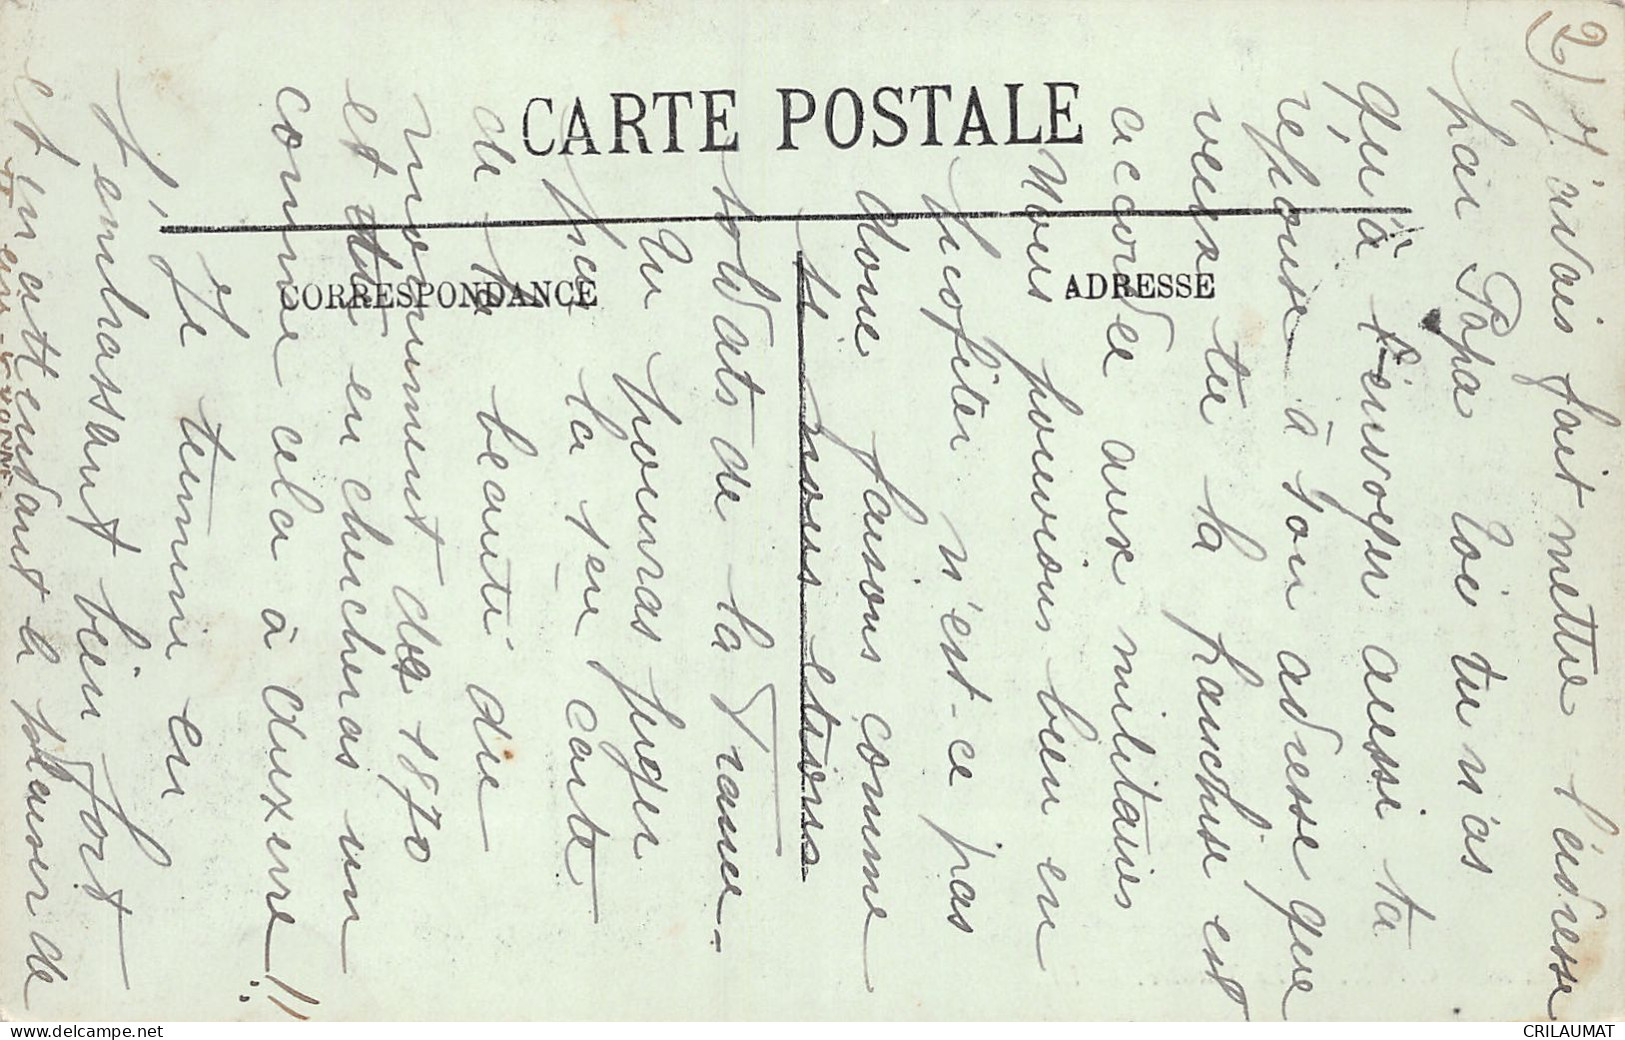 CARTE POSTALE
CORRESPONDANCE
ADRESSE
2) J'avais fait mettre l'adresse
par Papa toi tu n'as
qu'à l'envoyer aussi ta
réponse à son adresse que
veux tu la franchise est
accordée aux militaires
Nous pouvions bien en
profiter n'est-ce pas
donc faisons comme
si nous etions
soldats de la France-
Tu pourras juger
par la 1ère carte
de la beauté du
monument de 1870
et tu en chercheras un
comme cela à auxerre!!
Je termine en
t'embrassant bien fort
et en attendant le plaisir de
CRILAUMAT